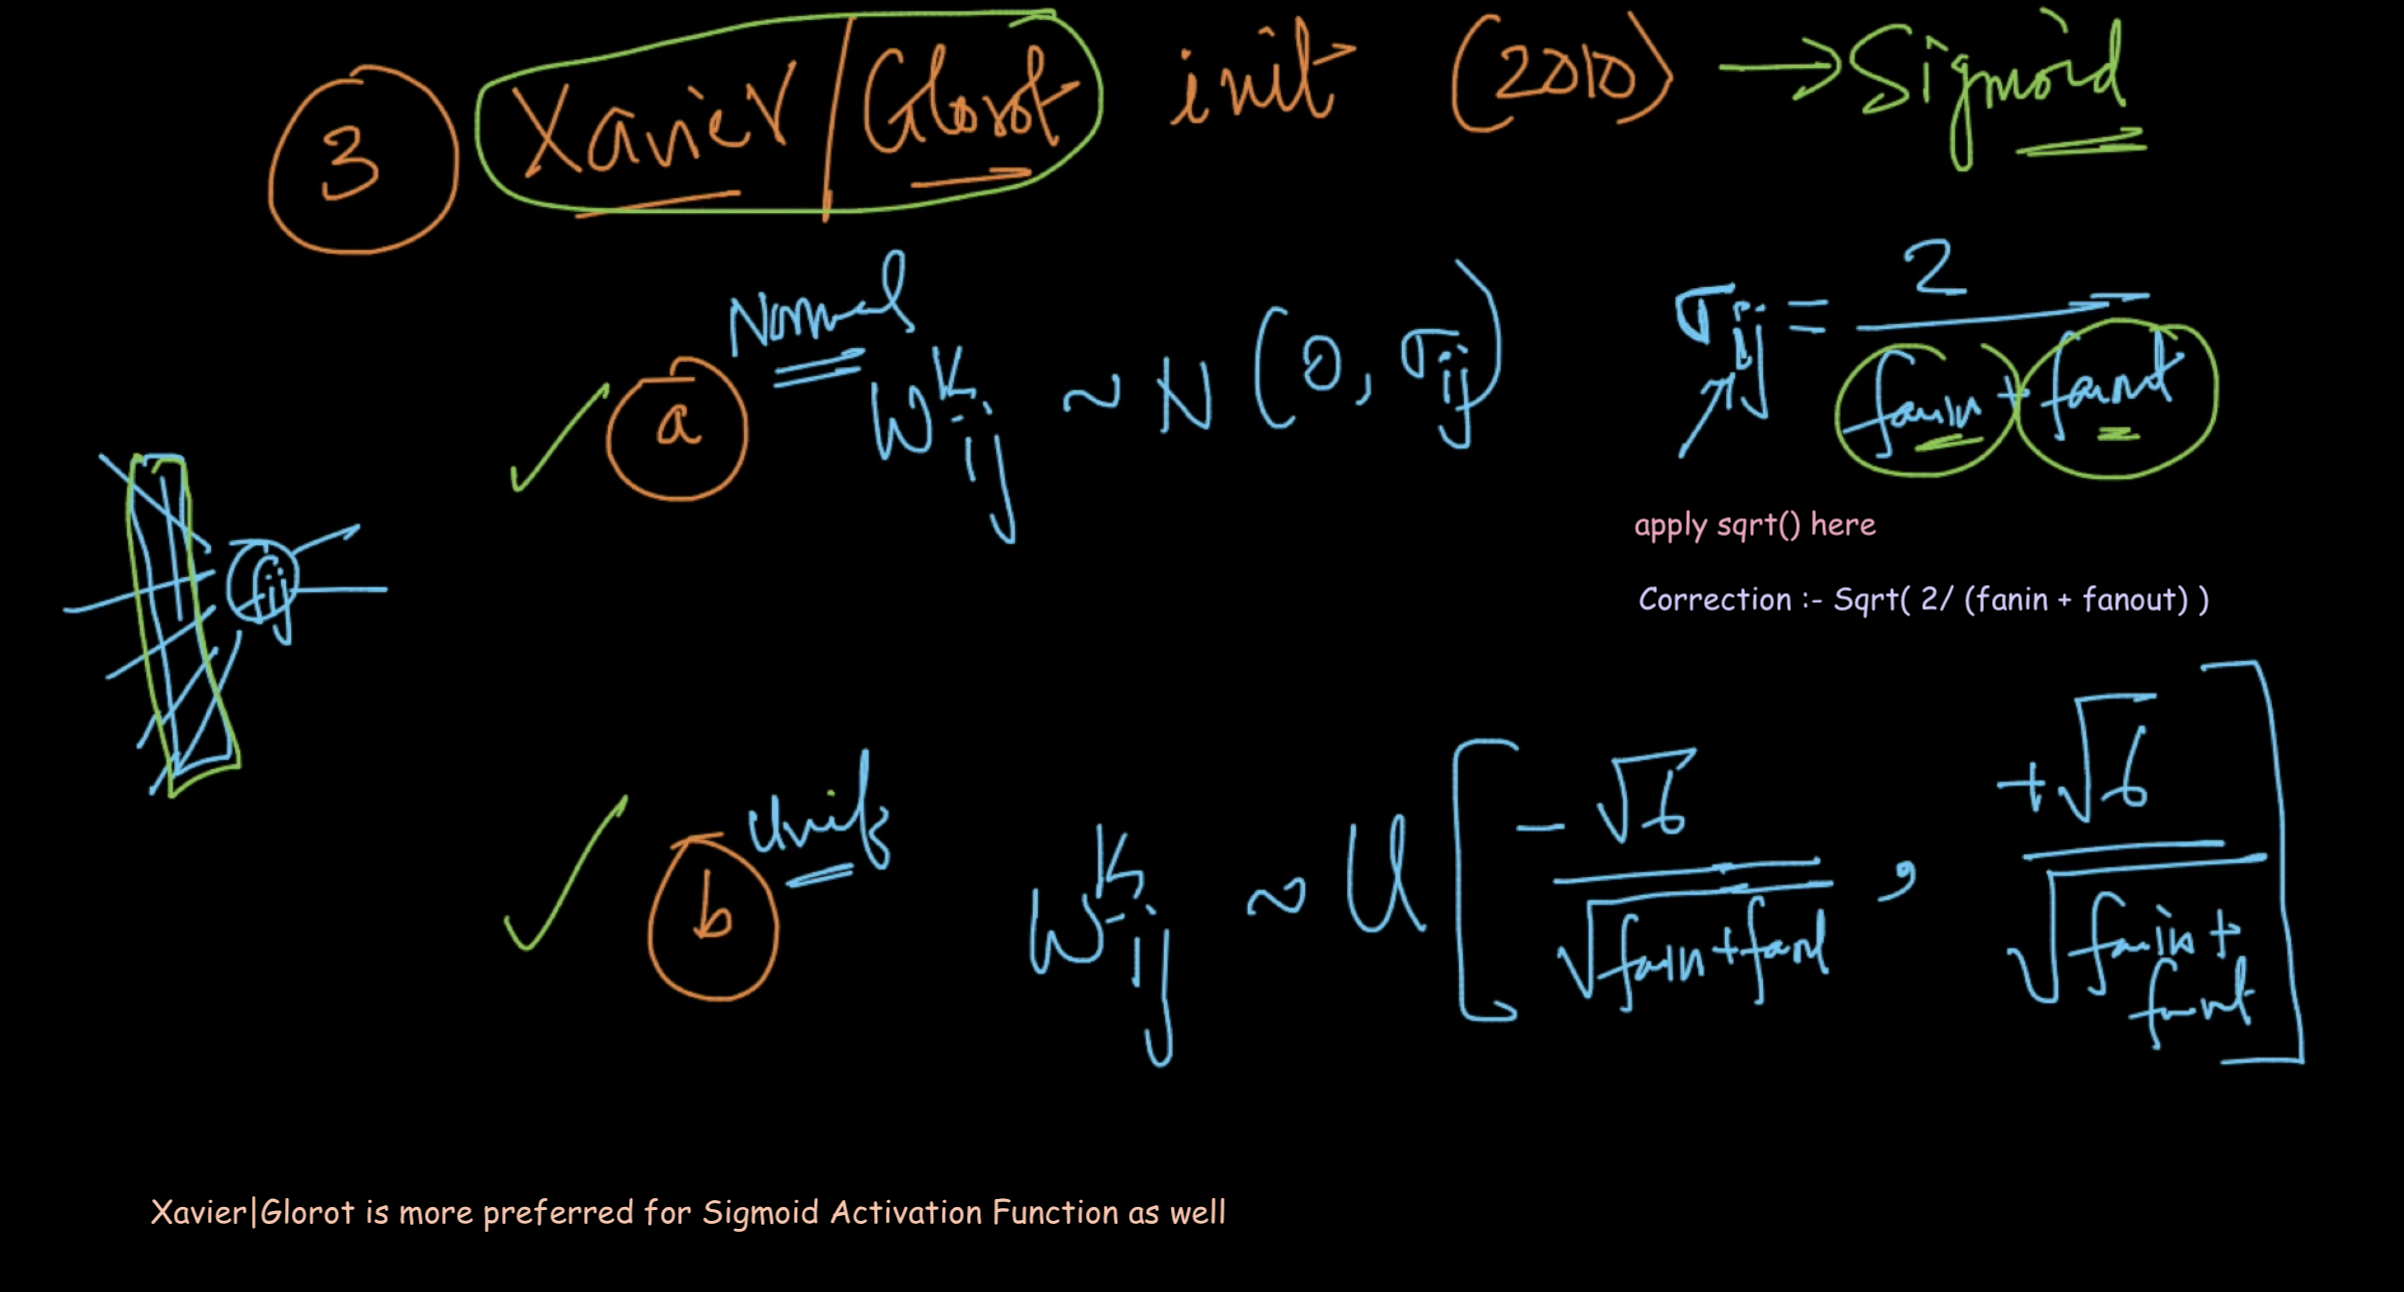 3 Xavier/Glorot init (2010) → Sigmoid
Normal
a W^k_ij ~ N(0, σ_ij) σ_ij = 2 / (fanin + fanout)
apply sqrt() here
fij
Correction :- Sqrt( 2/ (fanin + fanout) )
Unif
b W^k_ij ~ U[-√6 / √fanin+fanout , +√6 / √fanin+fanout]
Xavier|Glorot is more preferred for Sigmoid Activation Function as well